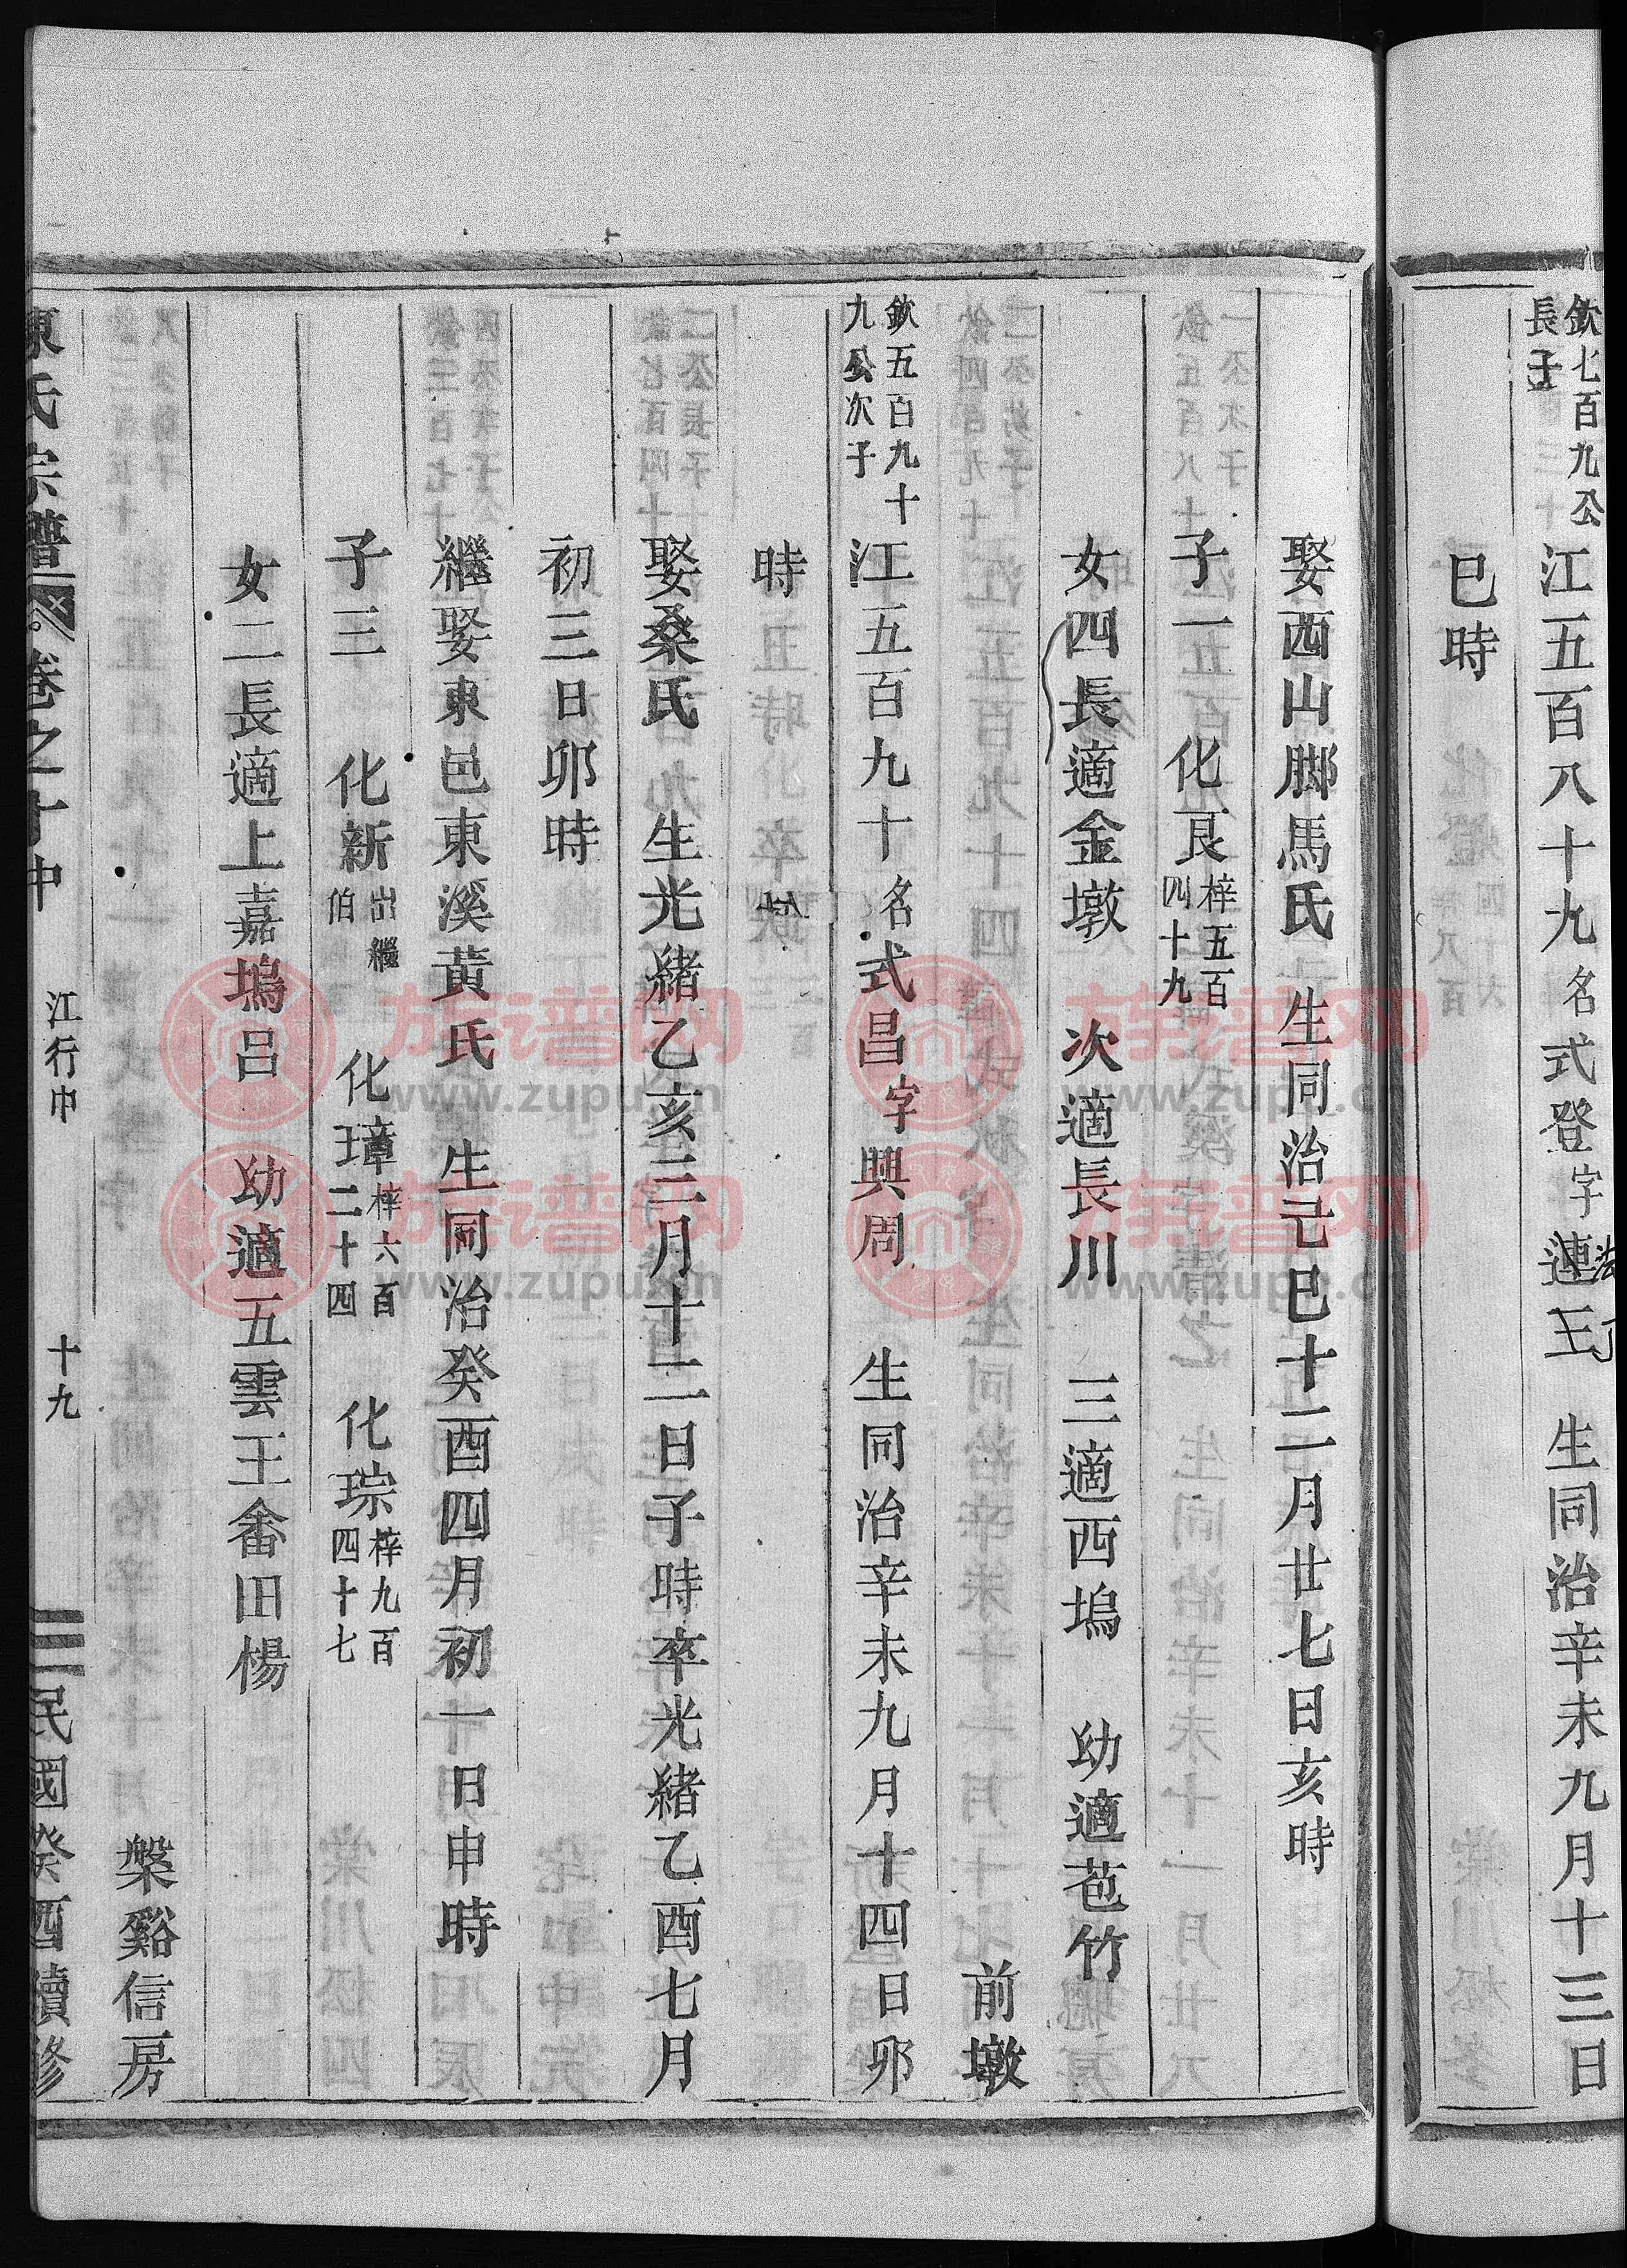 欽七百九公長子
江五百八十九名式登字連玉 生同治辛未九月十三日
巳時
娶西山腳馬氏 生同治己巳十二月廿七日亥時
子一 化艮梓五百四十九
女四長適金墩 次適長川 三適西塢 幼適苞竹
前墩
欽五百九十九公次子
江五百九十名式昌字興周 生同治辛未九月十四日卯
時
娶桑氏 生光緒乙亥三月十二日子時卒光緒乙酉七月
初三日卯時
繼娶東邑東溪黃氏 生同治癸酉四月初一日申時
子三 化新出繼伯 化璋梓六百二十四 化琮梓九百四十七
女二長適上嘉塢呂 幼適五雲王畬田楊
槃谿信房
陳氏宗譜 卷之十中 江行中 十九 民國癸酉續修
族谱网
www.zupu.cn
族谱网
www.zupu.cn
族谱网
www.zupu.cn
族谱网
www.zupu.cn